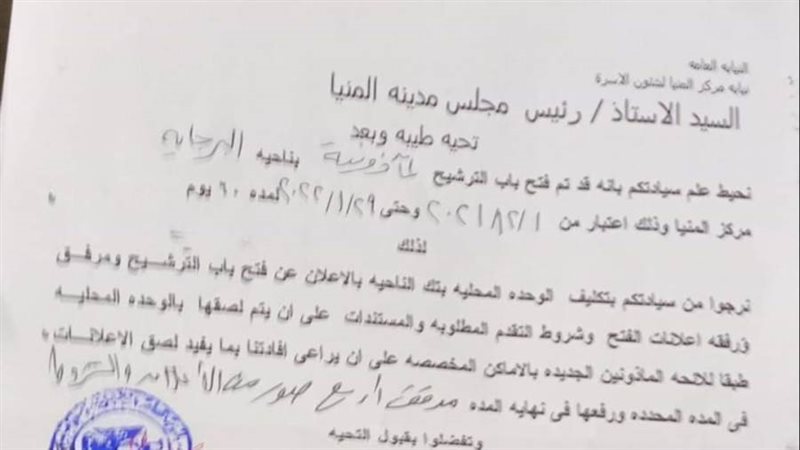 النيابه العامه
نيابه مركز المنيا لشئون الاسرة
السيد الاستاذ / رئيس مجلس مدينه المنيا
تحيه طيبه وبعد
نحيط علم سيادتكم بانه قد تم فتح باب الترشيح لمأذونية بناحيه البرجايه
مركز المنيا وذلك اعتبار من وحتى ٢٠٢٢/١/٢٩ لمده ٦٠ يوم
لذلك
نرجوا من سيادتكم بتكليف الوحده المحليه بتك الناحيه بالاعلان عن فتح باب الترشيح ومرفق
ورفقه اعلانات الفتح وشروط التقدم المطلوبه والمستندات على ان يتم لصقها بالوحده المحليه
طبقا للائحه الماذونين الجديده بالاماكن المخصصه على ان يراعى افادتنا بما يفيد لصق الاعلانات
فى المده المحدده ورفعها فى نهايه المده مرفق اربع صور من والشروط
وتفضلوا بقبول التحيه